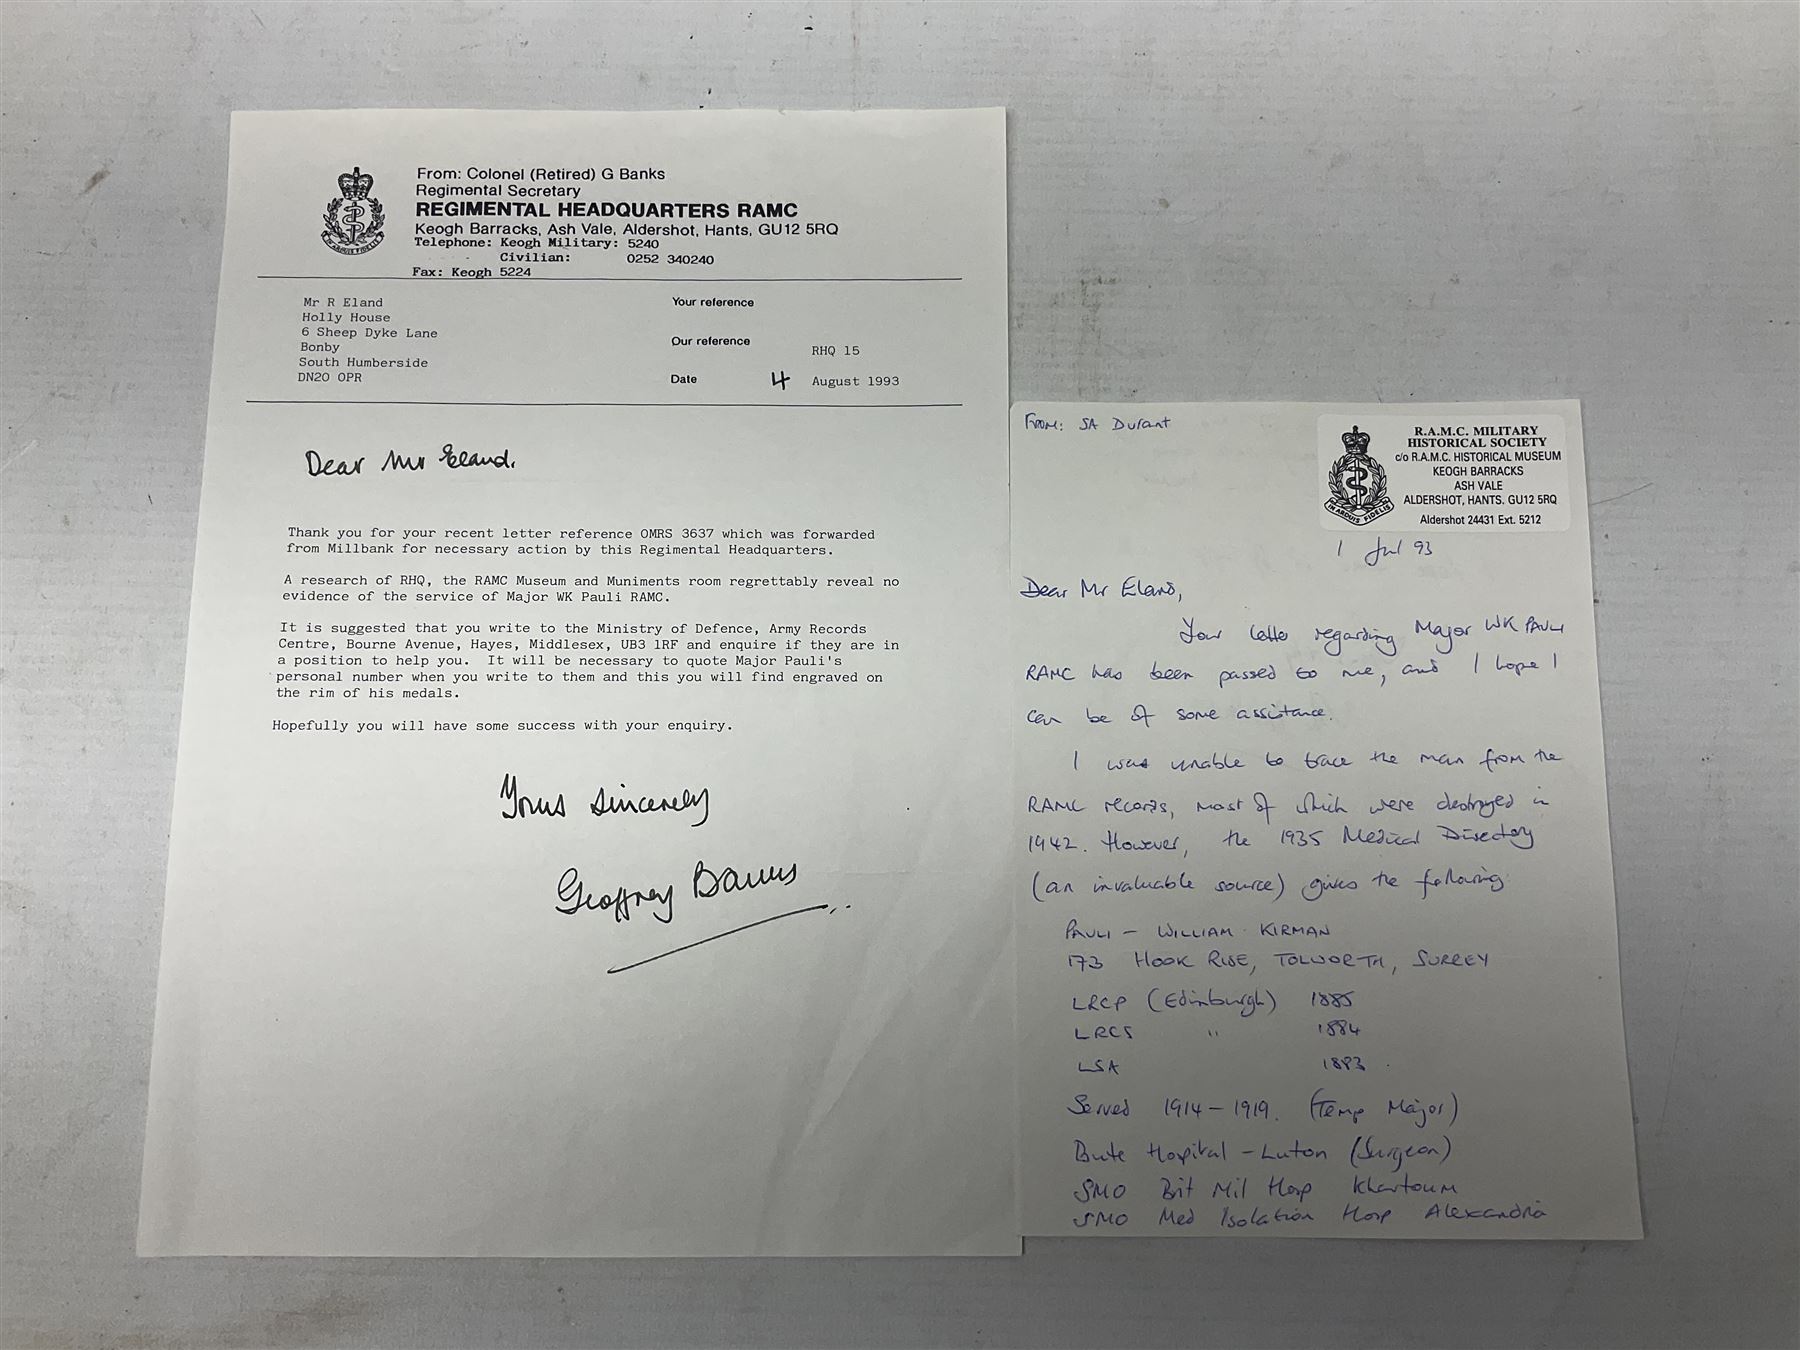 From: Colonel (Retired) G Banks
Regimental Secretary
REGIMENTAL HEADQUARTERS RAMC
Keogh Barracks, Ash Vale, Aldershot, Hants, GU12 5RQ
Telephone: Keogh Military: 5240
Civilian: 0252 340240
Fax: Keogh 5224
IN ARDUIS FIDELIS
Mr R Eland
Holly House
6 Sheep Dyke Lane
Bonby
South Humberside
DN20 OPR
Your reference
Our reference RHQ 15
Date 4 August 1993
Dear Mr Eland,
Thank you for your recent letter reference OMRS 3637 which was forwarded
from Millbank for necessary action by this Regimental Headquarters.
A research of RHQ, the RAMC Museum and Muniments room regrettably reveal no
evidence of the service of Major WK Pauli RAMC.
It is suggested that you write to the Ministry of Defence, Army Records
Centre, Bourne Avenue, Hayes, Middlesex, UB3 1RF and enquire if they are in
a position to help you. It will be necessary to quote Major Pauli's
personal number when you write to them and this you will find engraved on
the rim of his medals.
Hopefully you will have some success with your enquiry.
Yours sincerely
Geoffrey Banks
From: SA Durant
R.A.M.C. MILITARY
HISTORICAL SOCIETY
c/o R.A.M.C. HISTORICAL MUSEUM
KEOGH BARRACKS
ASH VALE
ALDERSHOT, HANTS. GU12 5RQ
Aldershot 24431 Ext. 5212
IN ARDUIS FIDELIS
1 Jul 93
Dear Mr Eland,
Your letter regarding Major WK PAULI
RAMC has been passed to me, and I hope I
can be of some assistance.
I was unable to trace the man from the
RAMC records, most of which were destroyed in
1942. However, the 1935 Medical Directory
(an invaluable source) gives the following:
PAULI - WILLIAM KIRMAN
173 HOOK RISE, TOLWORTH, SURREY
LRCP (Edinburgh) 1885
LRCS " 1884
LSA 1883.
Served 1914-1919. (Temp Major)
Bute Hospital - Luton (Surgeon)
SMO Brit Mil Hosp Khartoum
SMO Med Isolation Hosp Alexandria